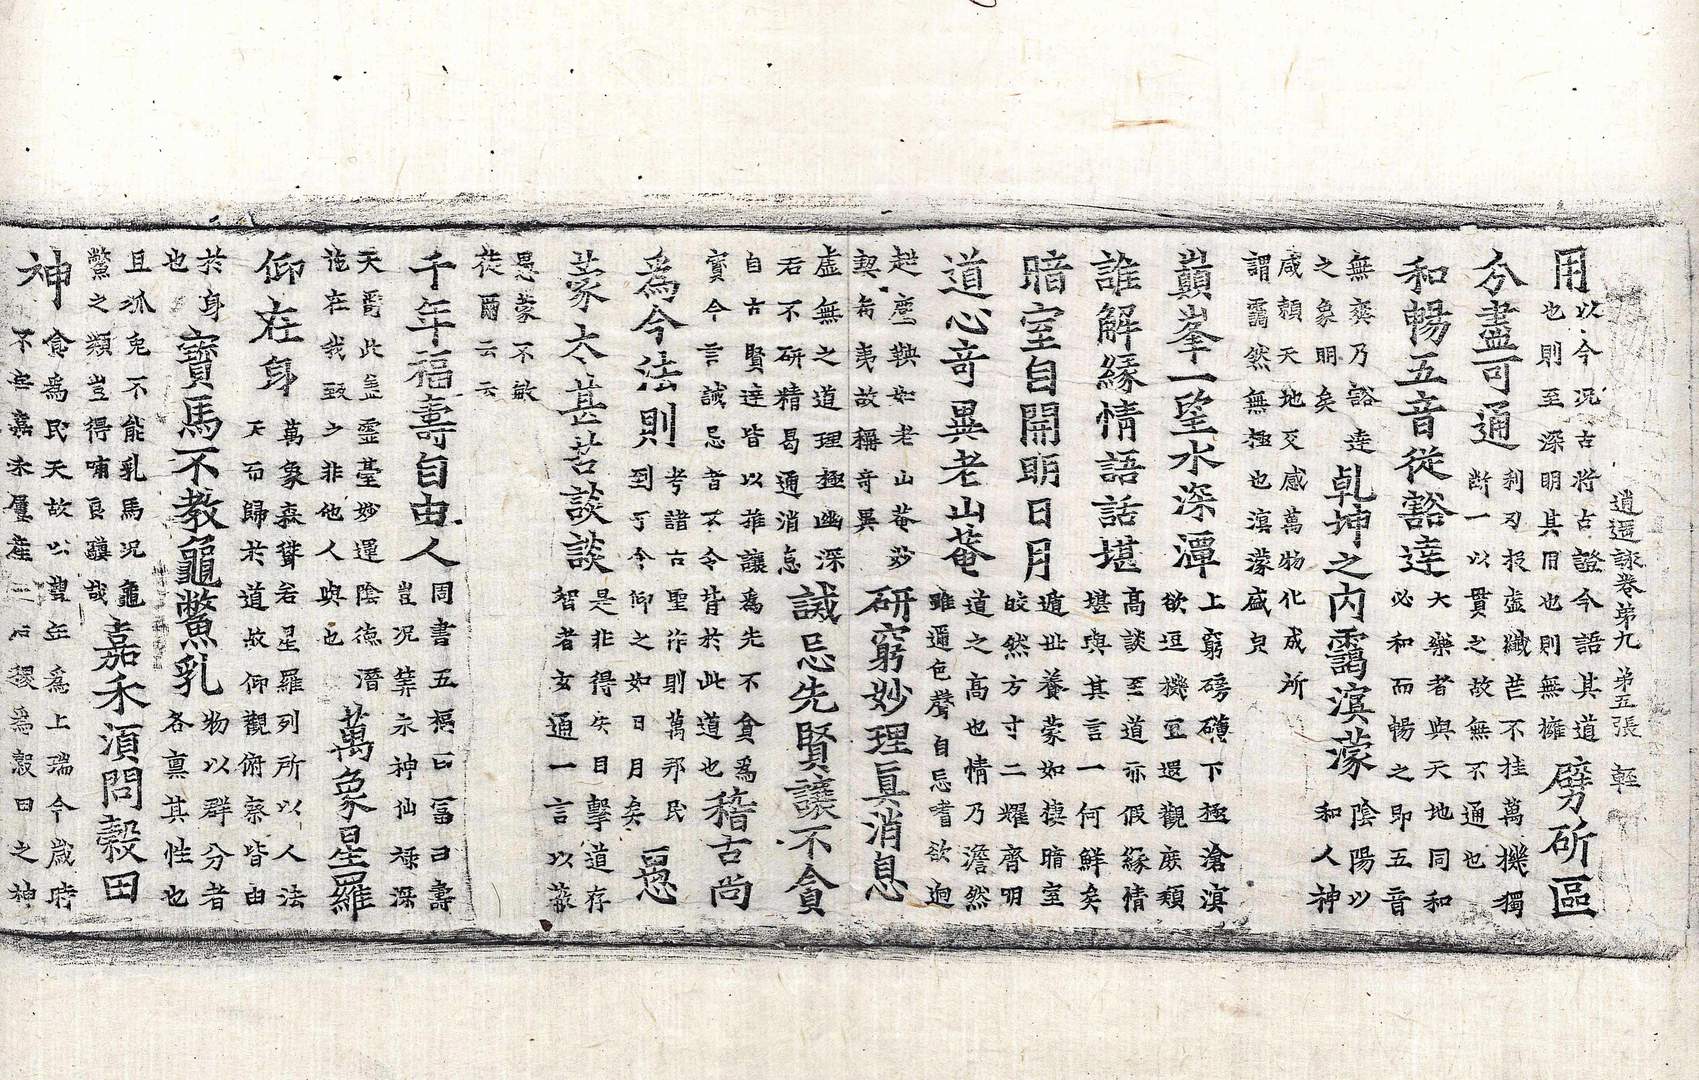 逍遥詠卷第九 第五張 輕
用 以今況古將古證今語其道
也則至深明其旨也則無擁 劈斫區
分盡可通 利刃投虛纖芒不挂萬機獨
斷一以貫之故無不通也
和暢五音從豁達 大樂者與天地同和
必和而暢之即五音
無奕乃豁達
之象明矣 乹坤之内靄溟濛 陰陽以
和人神
咸賴天地交感萬物化成所
謂靄然無極也溟濛盛皃
巔峯一望水深潭 上窮磅礴下極滄溟
欲逗機宜還觀庶類
誰解緣情語話堪 高談至道亦假緣情
堪與其言一何鮮矣
暗室自開明日月 遁世養蒙如棲暗室
皎然方寸二耀齊明
道心竒異老山菴 道之高也情乃澹然
雖邇色聲自忘嗜欲逈
超塵鞅如老山菴妙
契旨夷故稱竒異 研窮妙理真消息
虛無之道理極幽深
若不研精曷通消息 誡忌先賢讓不貪
自古賢達皆以推讓為先不貪為
寳今言誡忌者不令背於此道也 稽古尚
為今法則 考諸古聖作則萬邦民
到于今仰之如日月矣 愚
蒙太甚苦談談 是非得失目擊道存
智者玄通一言以蔽
愚蒙不敏
徒爾云云
千年福壽自由人 周書五福曰富曰壽
豈況筭永神仙禄深
天爵此盖靈臺妙運陰德潛
施在我致之非他人與也 萬象星羅
仰在身 萬象森聳若星羅列所以人法
天而歸於道故仰觀俯察皆由
於身
也 寳馬不教龜鱉乳 物以群分者
各禀其性也
且狐兔不能乳馬況龜
鱉之類豈得哺良驥哉 嘉禾須問穀田
神 食為民天故以豐年為上瑞今歲時
不無嘉禾屢產 稷為穀田之神